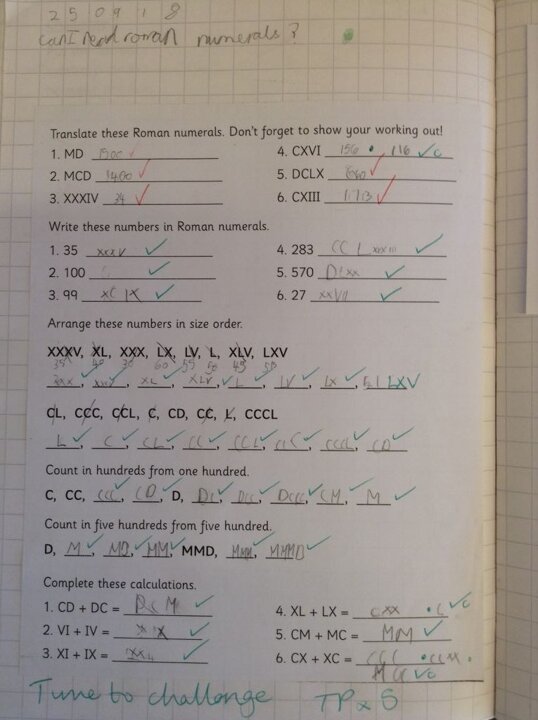 2 5 0 9 1 8
Can I read roman numerals?
Translate these Roman numerals. Don't forget to show your working out!
1. MD 1500
2. MCD 1400
3. XXXIV 34
4. CXVI 156 116
5. DCLX
6. CXIII
Write these numbers in Roman numerals.
1. 35 xxxv
2. 100
3. 99 xc ix
4. 283 CC L xxxiii
5. 570 DLxx
6. 27 xxvii
Arrange these numbers in size order.
XXXV, XL, XXX, LX, LV, L, XLV, LXV
35 40 30 60 55 50 45
xxx, XL, XLV, L, LV, LX, LXV
CL, CCC, CCL, C, CD, CC, L, CCCL
L, C, CL, CC, CCL, CCC, CCCL, CD
Count in hundreds from one hundred.
C, CC, CCC, CD, D, DC, DCC, DCCC, CM, M
Count in five hundreds from five hundred.
D, M, MD, MM, MMD, MMM, MMMD
Complete these calculations.
1. CD + DC =
2. VI + IV = X
3. XI + IX =
4. XL + LX = C
5. CM + MC = MM
6. CX + XC =
Time to challenge TP x 5